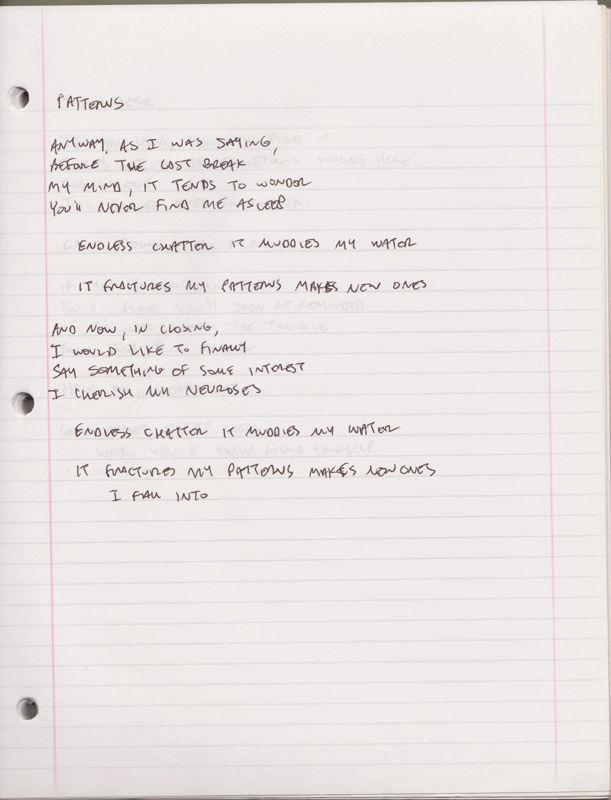 PATTERNS
ANYWAY, AS I WAS SAYING,
BEFORE THE LAST BREAK
MY MIND, IT TENDS TO WONDER
YOU'LL NEVER FIND ME ASLEEP
ENDLESS CHATTER IT MUDDIES MY WATER
IT FRACTURES MY PATTERNS MAKES NEW ONES
AND NOW, IN CLOSING,
I WOULD LIKE TO FINALLY
SAY SOMETHING OF SOME INTEREST
I CHERISH MY NEUROSES
ENDLESS CHATTER IT MUDDIES MY WATER
IT FRACTURES MY PATTERNS MAKES NEW ONES
I FALL INTO